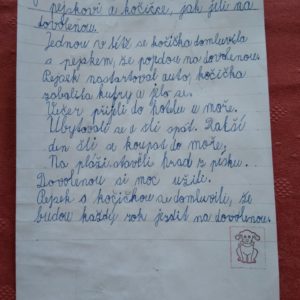 pejskovi a kočičce, jak jeli na
dovolenou.
Jednou v létě se kočička domluvila
s pejskem, že pojedou na dovolenou.
Pejsek nastartoval auto, kočička
zabalila kufry a jelo se.
Večer přijeli do hotelu u moře.
Ubytovali se a šli spát. Další
den šli se koupat do moře.
Na pláži stavěli hrad z písku.
Dovolenou si moc užili.
Pejsek s kočičkou se domluvili, že
budou každý rok jezdit na dovolenou.